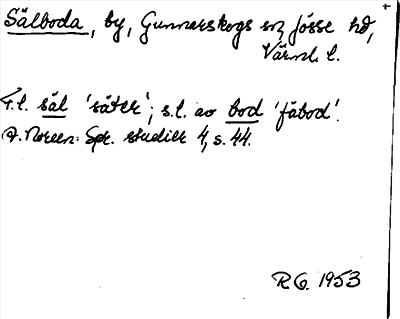 Sälboda, by, Gunnarskogs sn, Jösse hd,
Värml. l.
F.l. säl 'säter'; s.l. av bod 'fäbod'.
A. Noreen: Spr. studier 4, s. 44.
R.G. 1953